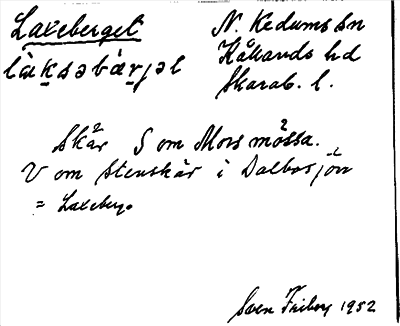 Laxeberget
N. Kedums sn
làksəbæ̀rjət
Kållands hd
Skarab. l.
Skär S om Mors mössa.
V om Stenskär i Dalbosjön
= Laxeberg.
Sven Friberg 1952